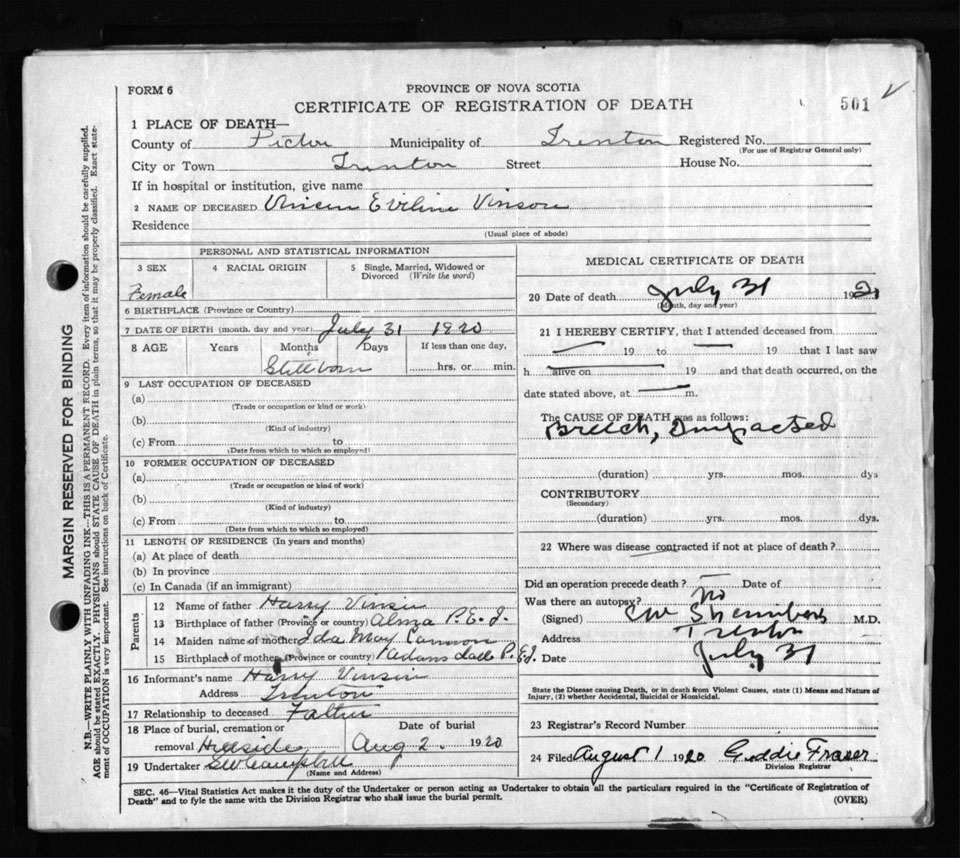 FORM 6
PROVINCE OF NOVA SCOTIA
CERTIFICATE OF REGISTRATION OF DEATH
501
1 PLACE OF DEATH—
County of Pictou Municipality of Trenton Registered No.
(For use of Registrar General only)
City or Town Trenton Street House No.
If in hospital or institution, give name
2 NAME OF DECEASED Eveline Vinson
Residence
(Usual place of abode)
PERSONAL AND STATISTICAL INFORMATION
3 SEX 4 RACIAL ORIGIN 5 Single, Married, Widowed or Divorced (Write the word)
Female
6 BIRTHPLACE (Province or Country)
7 DATE OF BIRTH (month, day and year) July 31 1920
8 AGE Years Months Days If less than one day,
Stillborn hrs. or min.
9 LAST OCCUPATION OF DECEASED
(a)
(Trade or occupation or kind or work)
(b)
(Kind of industry)
(c) From to
(Date from which to which so employed)
10 FORMER OCCUPATION OF DECEASED
(a)
(Trade or occupation or kind of work)
(b)
(Kind of industry)
(c) From to
(Date from which to which so employed)
11 LENGTH OF RESIDENCE (In years and months)
(a) At place of death
(b) In province
(c) In Canada (if an immigrant)
Parents
12 Name of father Harry Vinsin
13 Birthplace of father (Province or country) Alma P.E.I.
14 Maiden name of mother Ida May Cannon
15 Birthplace of mother (Province or country) P.E.I.
16 Informant's name Harry Vinsin
Address Trenton
17 Relationship to deceased Father
18 Place of burial, cremation or removal Hillside Date of burial Aug 2. 1920
19 Undertaker SW Campbell
(Name and Address)
MEDICAL CERTIFICATE OF DEATH
20 Date of death July 31 192
(Month, day and year)
21 I HEREBY CERTIFY, that I attended deceased from
19 to 19 that I last saw
h alive on 19 and that death occurred, on the
date stated above, at m.
The CAUSE OF DEATH was as follows:
Breech, Impacted
(duration) yrs. mos. dys
CONTRIBUTORY
(Secondary)
(duration) yrs. mos. dys.
22 Where was disease contracted if not at place of death?
Did an operation precede death? Date of
Was there an autopsy? no
(Signed) M.D.
Address Trenton
Date July 31
State the Disease causing Death, or in death from Violent Causes, state (1) Means and Nature of
Injury, (2) whether Accidental, Suicidal or Homicidal.
23 Registrar's Record Number
24 Filed August 1 1920 Fraser
Division Registrar
SEC. 46—Vital Statistics Act makes it the duty of the Undertaker or person acting as Undertaker to obtain all the particulars required in the "Certificate of Registration of
Death" and to fyle the same with the Division Registrar who shall issue the burial permit.
(OVER)
MARGIN RESERVED FOR BINDING
N.B.—WRITE PLAINLY WITH UNFADING INK—THIS IS A PERMANENT RECORD. Every item of information should be carefully supplied.
AGE should be stated EXACTLY. PHYSICIANS should STATE CAUSE OF DEATH in plain terms, so that it may be properly classified. Exact state-
ment of OCCUPATION is very important. See instructions on back of Certificate.